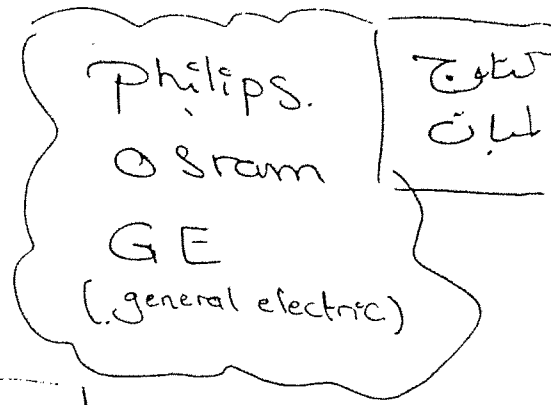 Philips.
Osram
GE
(.general electric)
كتلوج
لمبات